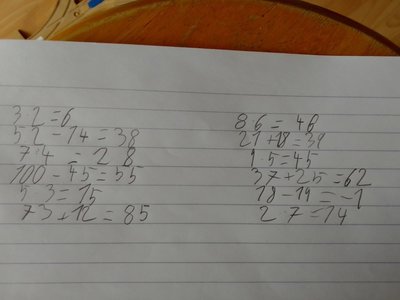 3·2=6
52-14=38
7·4=28
100-45=55
5·3=15
73+12=85
8·6=46
21+18=39
1·5=45
37+25=62
18-19=-1
2·7=14